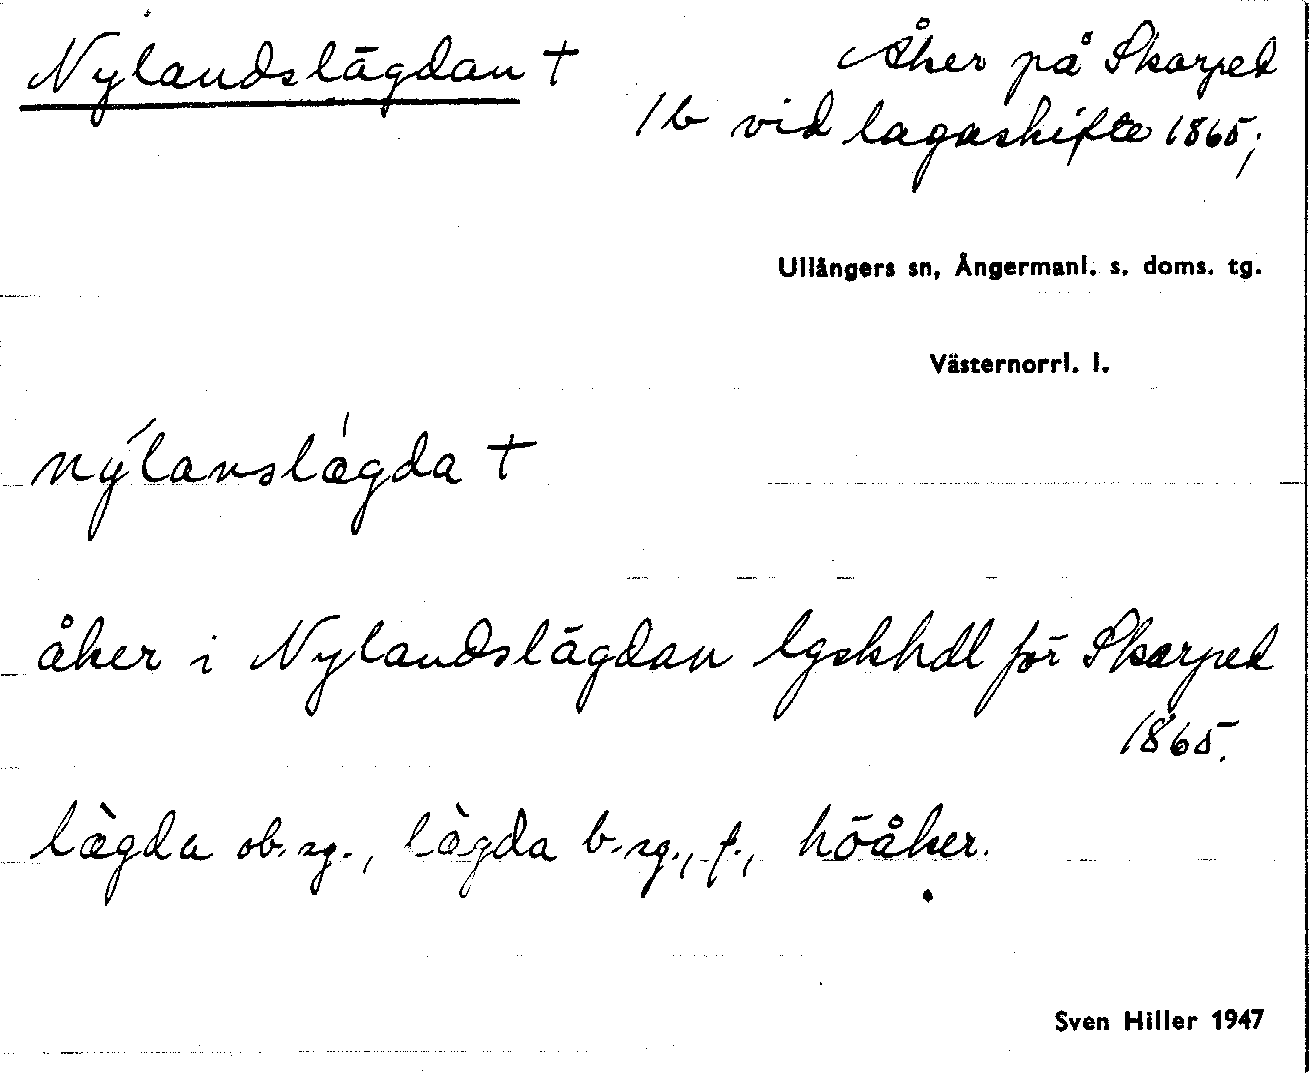 Nylandslägdan †
Åker på Skarped
1b vid lagaskifte 1865;
Ullångers sn, Ångermanl. s. doms. tg.
Västernorrl. l.
nýlanslǽgda †
åker i Nylandslägdan lgskhdl för Skarped
1865.
lægda ob. sg., lægda b. sg., f., höåker.
Sven Hiller 1947